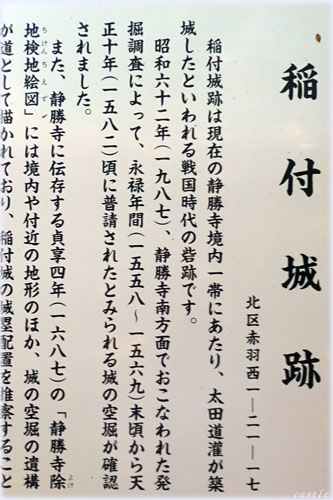 稲付城跡
北区赤羽西一―二一―一七
稲付城跡は現在の静勝寺境内一帯にあたり、太田道灌が築
城したといわれる戦国時代の砦跡です。
昭和六十二年(一九八七)、静勝寺南方面でおこなわれた発
掘調査によって、永禄年間(一五五八~一五六九)末頃から天
正十年(一五八二)頃に普請されたとみられる城の空掘が確認
されました。
また、静勝寺に伝存する貞享四年(一六八七)の「静勝寺除
よけ
地検地絵図」には境内や付近の地形のほか、城の空掘の遺構
ちけんちえず
が道として描かれており、稲付城の城塁配置を推察すること
castle